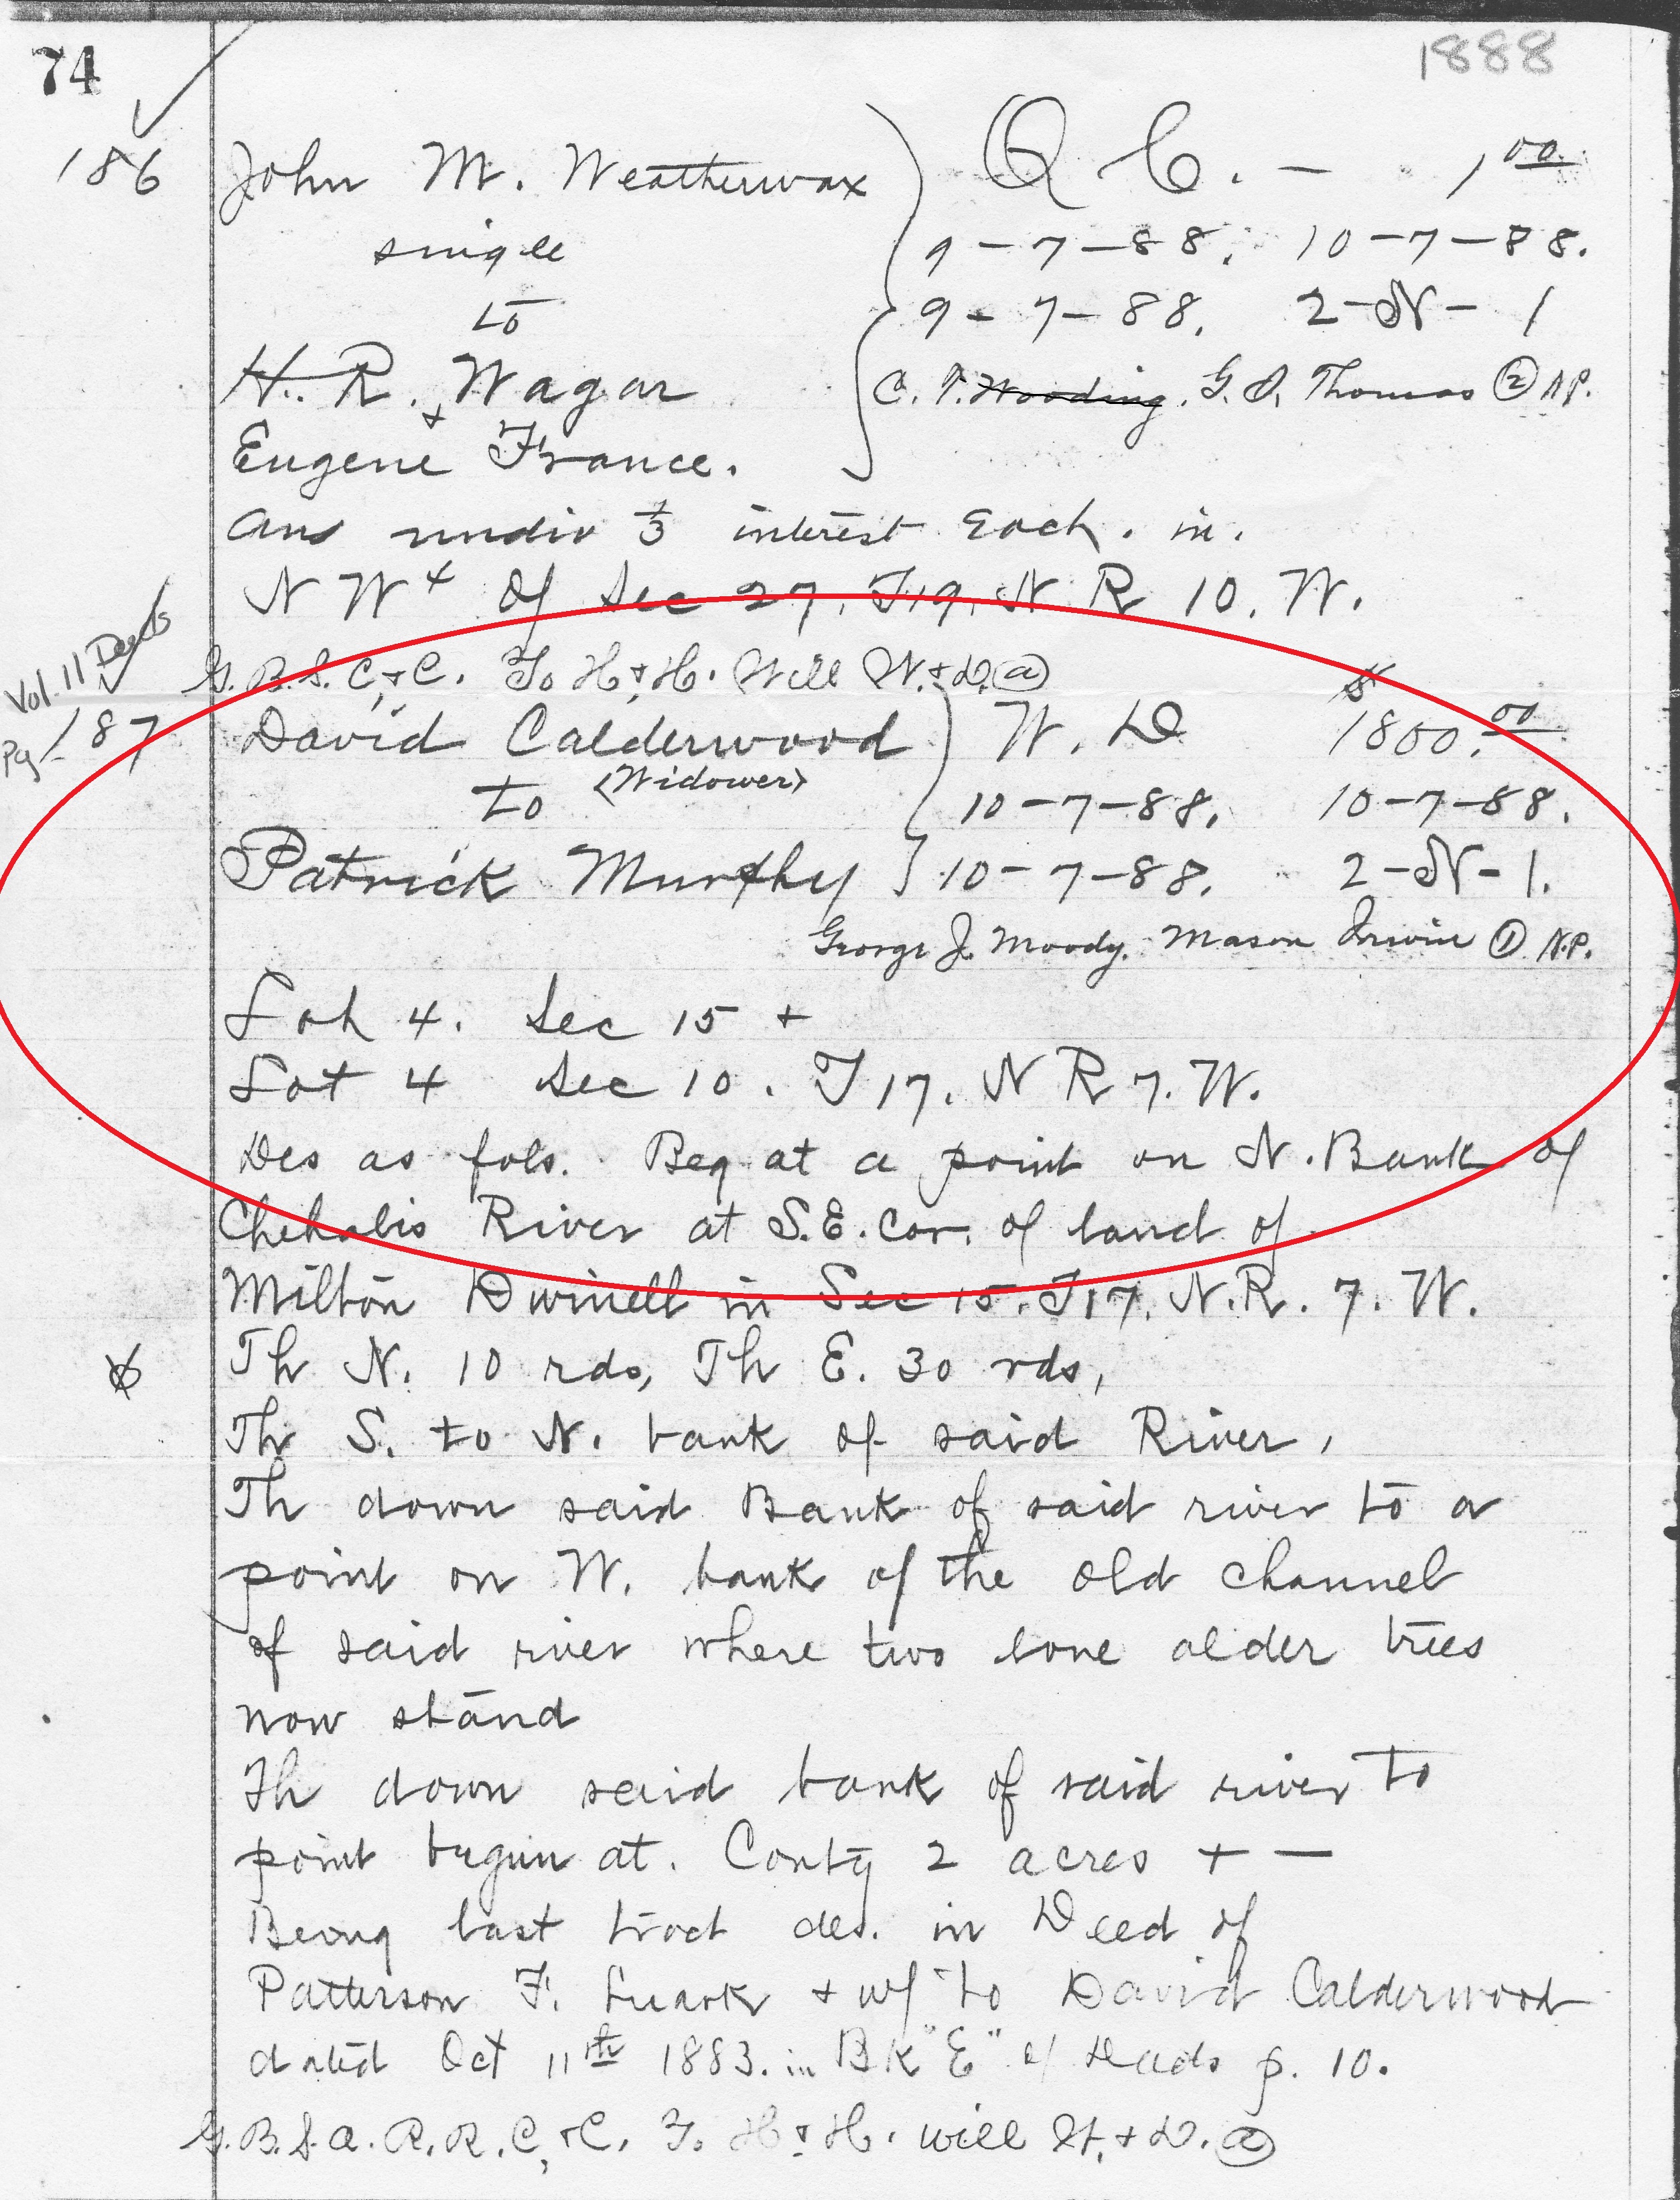 74
1888
186 John M. Weatherwax Q C. — 1 00
single 9-7-88. 10-7-88.
to 9-7-88. 2-N-1
H. R. Wagar C. F. Wooding. G. D. Thomas ② N.P.
+
Eugene France.
Ans undiv 1/3 interest Each. in.
NW4 of Sec 27. T19. N R 10. W.
G.B.S. C,+C. To H+H. Will W.+D. ⓐ
Vol. 11 Deeds
Pg 187 David Calderwood W. D $1800.00
to (Widower) 10-7-88. 10-7-88.
Patrick Murphy 10-7-88. 2-N-1.
George J. Moody. Mason Irwin ① N.P.
Lot 4. Sec 15 +
Lot 4 Sec 10. T 17. N R 7. W.
Des as fols. Beg at a point on N. Bank of
Chehalis River at S.E. Cor. of land of
Milton Dwinell in Sec 15. T17. N.R. 7. W.
Th N. 10 rds, Th E. 30 rds,
Th S. to N. bank of said River,
Th down said Bank of said river to a
point on W. bank of the old channel
of said river where two lone alder trees
now stand
Th down said bank of said river to
point begun at. Contg 2 acres + —
Being last tract des. in Deed of
Patterson F. Luark + wf to David Calderwood
dated Oct 11th 1883. in BK "E" of Deeds p. 10.
G.B.S.a.R.R.C,+C. To H+H. will W.+D. ⓐ